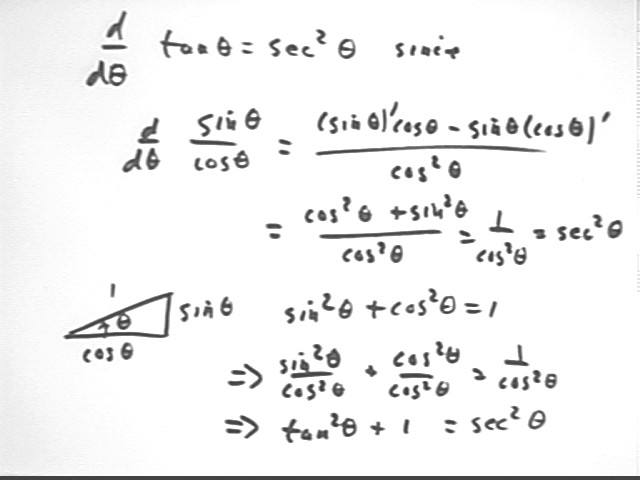 d/dθ tan θ = sec² θ since
d/dθ sin θ/cos θ = ((sin θ)'cos θ - sin θ(cos θ)')/cos² θ
= (cos² θ + sin² θ)/cos² θ = 1/cos² θ = sec² θ
1 θ sin θ cos θ
sin² θ + cos² θ = 1
=> sin² θ/cos² θ + cos² θ/cos² θ = 1/cos² θ
=> tan² θ + 1 = sec² θ